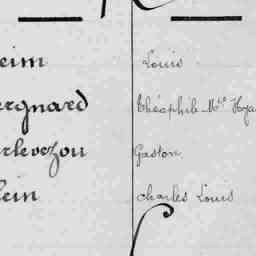 eim Louis
ergnard Théophile Mce Hya
rlevezou Gaston
lein Charles Louis